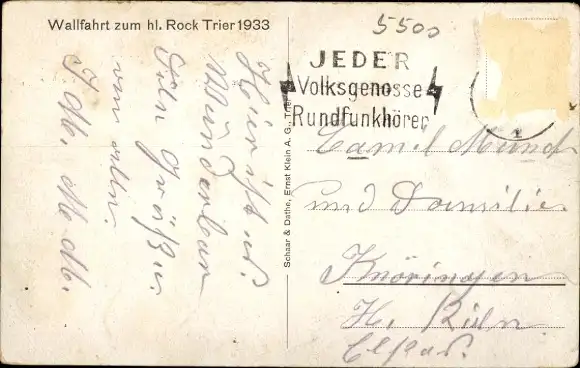 Wallfahrt zum hl. Rock Trier 1933
5500
JEDER
Volksgenosse
Rundfunkhörer
Schaar & Dathe, Ernst Klein A. G., Trier
Hier ist es
Wunderbar
Viele Grüße
von allen
Camil
und Familie
Knöringen
H. Rhin
Elsass.